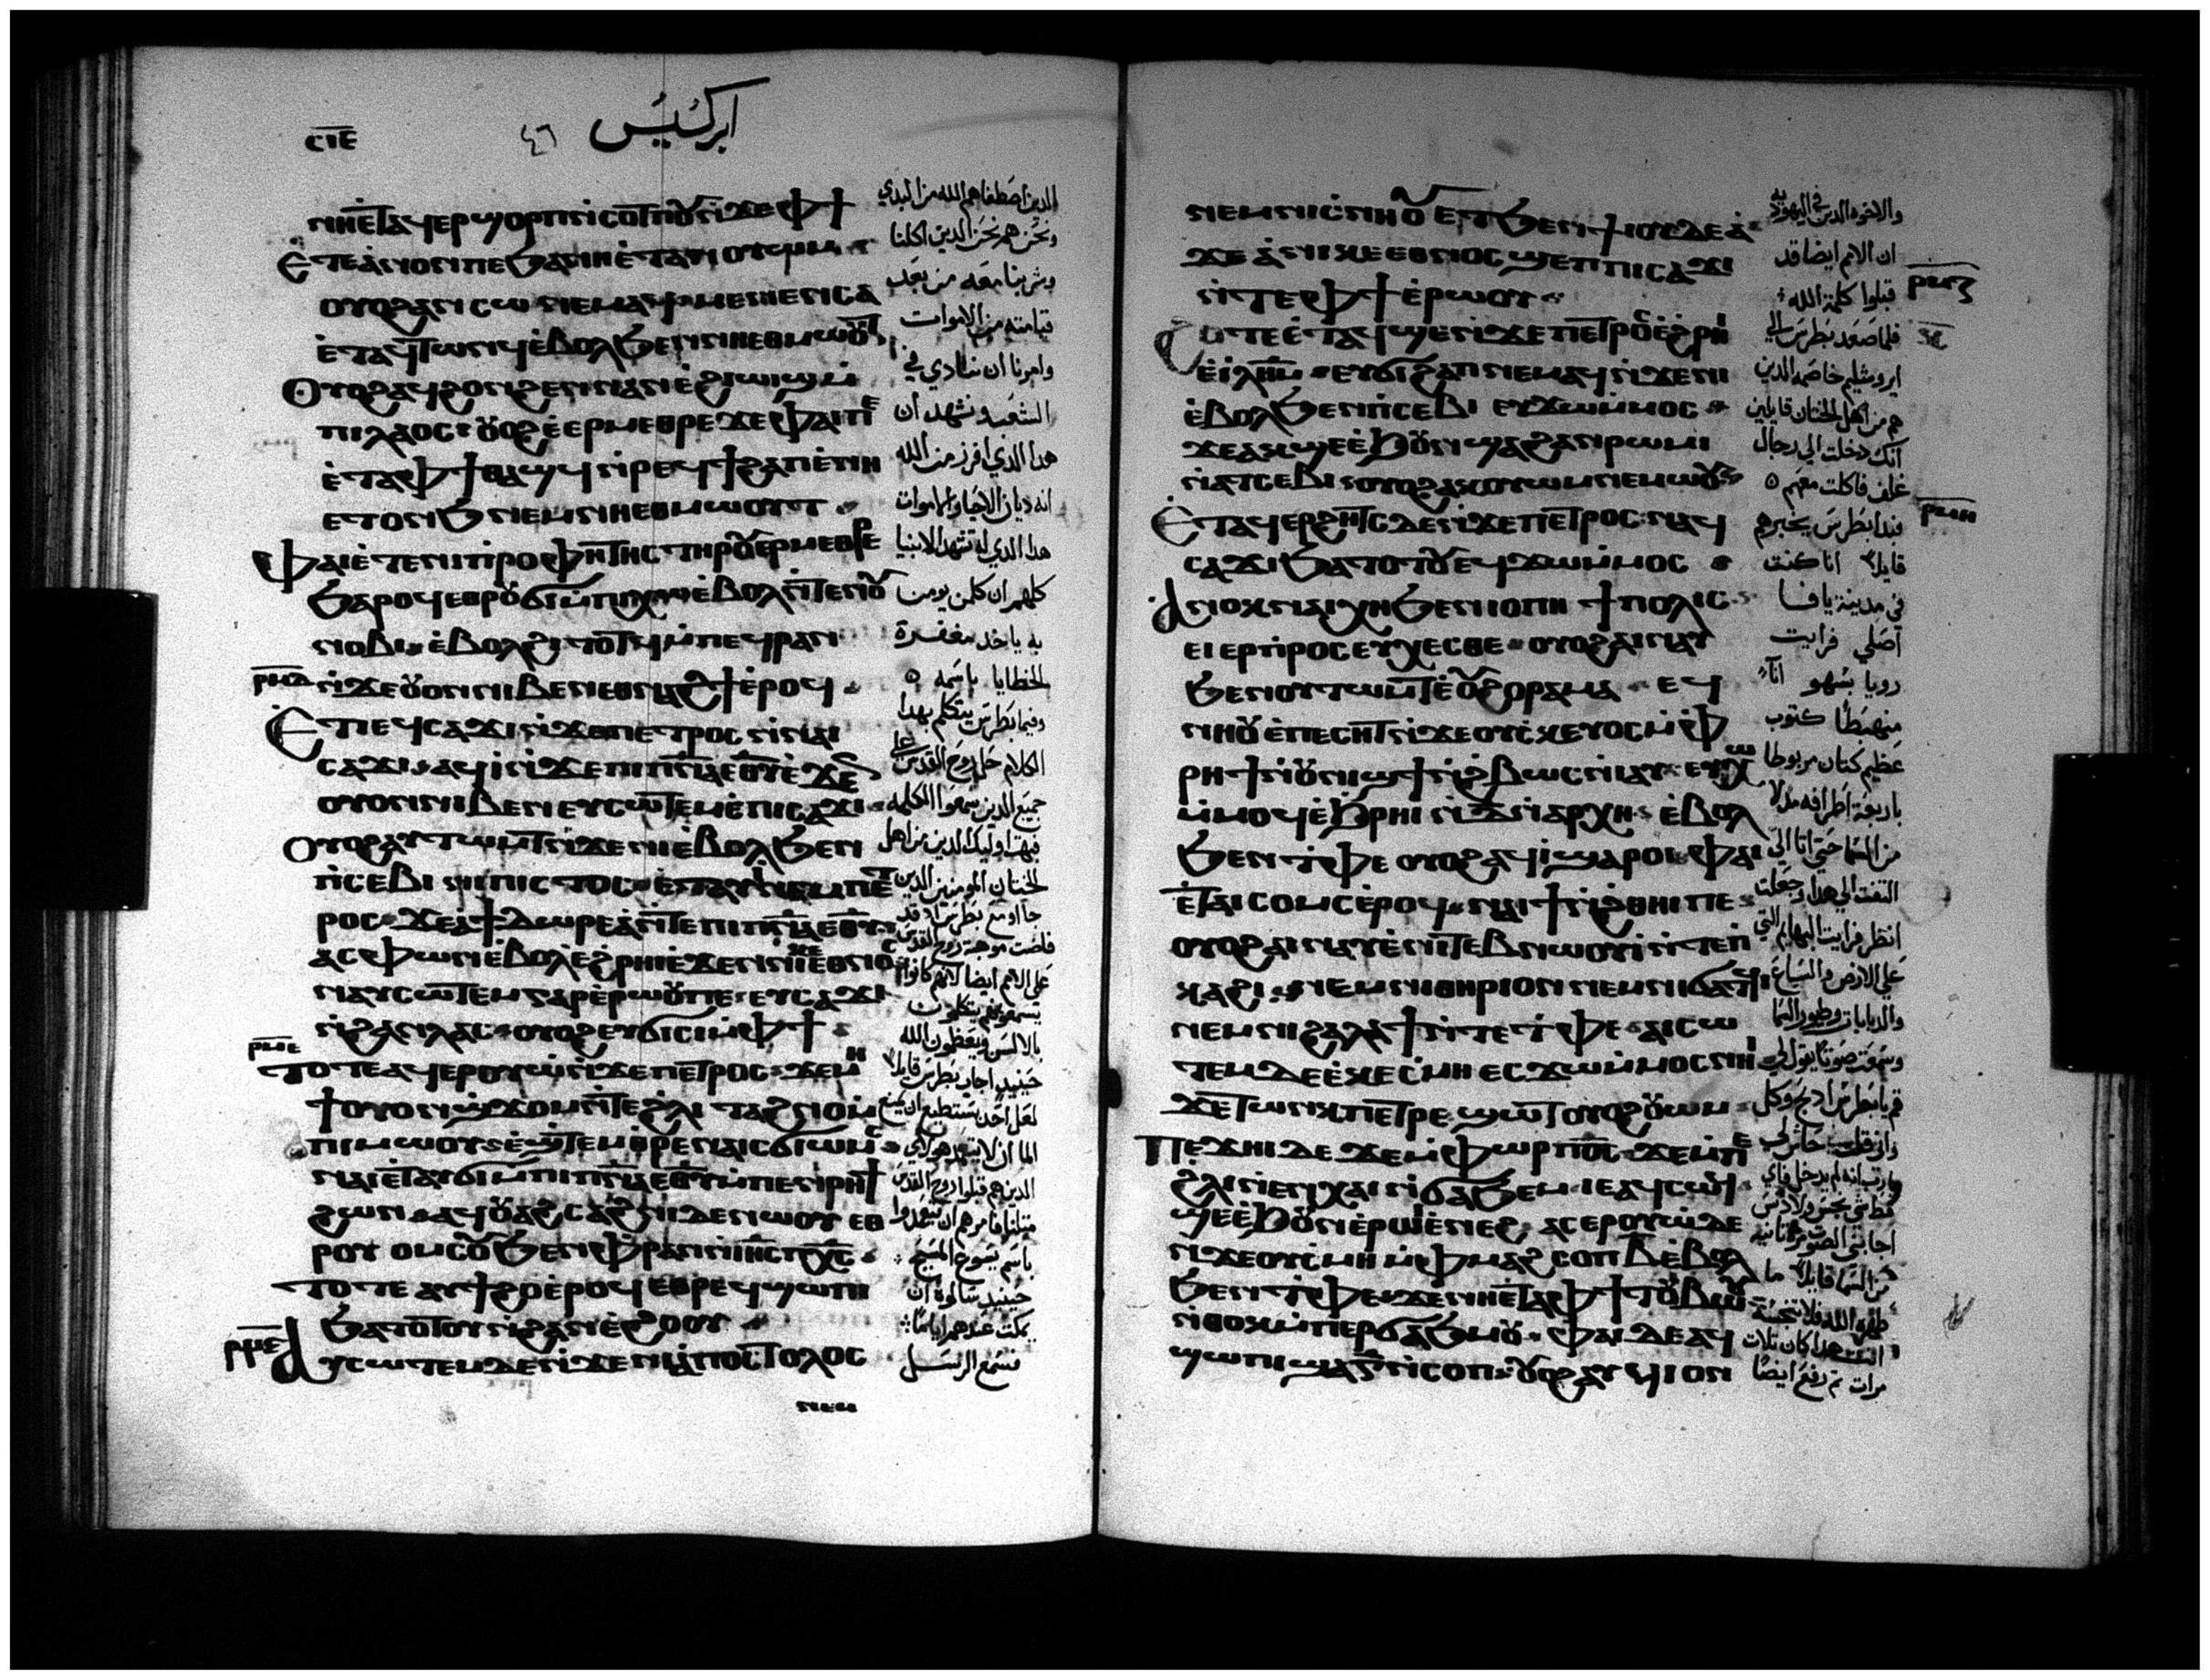 ⲥⲓⲉ
٤٦
ابركسيس
ⲛⲏⲉⲧⲁϥⲉⲣϣⲟⲣⲡ ⲛⲥⲟⲧⲡⲟⲩ ⲛϫⲉ ⲫϯ
ⲉⲧⲉ ⲁⲛⲟⲛ ⲡⲉ ϧⲁ ⲛⲏ ⲉⲧⲁⲛⲟⲩⲱⲙ
ⲟⲩⲟϩ ⲁⲛⲥⲱ ⲛⲉⲙⲁϥ ⲙⲉⲛⲉⲛⲥⲁ
ⲉⲧⲁϥⲧⲱⲛϥ ⲉⲃⲟⲗ ϧⲉⲛ ⲛⲏⲉⲑⲙⲱⲟⲩⲧ
ⲟⲩⲟϩ ⲁϥϩⲟⲛϩⲉⲛ ⲛⲁⲛ ⲉϩⲓⲱⲓϣ ⲙ
ⲡⲓⲗⲁⲟⲥ ⲟⲩⲟϩ ⲉⲉⲣⲙⲉⲑⲣⲉ ϫⲉ ⲫⲁⲓ ⲡⲉ
ⲉⲧⲁ ⲫϯ ⲑⲁϣϥ ⲛⲣⲉϥϯϩⲁⲡ ⲉⲛⲏ
ⲉⲧⲟⲛϧ ⲛⲉⲙ ⲛⲏⲉⲑⲙⲱⲟⲩⲧ
ⲫⲁⲓ ⲉⲧⲉ ⲛⲓⲡⲣⲟⲫⲏⲧⲏⲥ ⲧⲏⲣⲟⲩ ⲉⲣⲙⲉⲑⲣⲉ
ϧⲁⲣⲟϥ ⲉⲑⲣⲟⲩϭⲓ ⲙⲡⲭⲱ ⲉⲃⲟⲗ ⲛⲧⲉ ⲛⲟⲩ
ⲛⲟⲃⲓ ⲉⲃⲟⲗ ϩⲓⲧⲟⲧϥ ⲙⲡⲉϥⲣⲁⲛ
ⲛϫⲉ ⲟⲩⲟⲛ ⲛⲓⲃⲉⲛ ⲉⲑⲛⲁϩϯ ⲉⲣⲟϥ
ⲉⲧⲓ ⲉϥⲥⲁϫⲓ ⲛϫⲉ ⲡⲉⲧⲣⲟⲥ ⲛⲛⲁⲓ
ⲥⲁϫⲓ ⲁϥⲓ ⲛϫⲉ ⲡⲓⲡⲛⲁ ⲉⲑⲩ ⲉϫⲉⲛ
ⲟⲩⲟⲛ ⲛⲓⲃⲉⲛ ⲉⲩⲥⲱⲧⲉⲙ ⲉⲡⲓⲥⲁϫⲓ
ⲟⲩⲟϩ ⲁⲩⲧⲱⲙⲧ ⲛϫⲉ ⲛⲓⲉⲃⲟⲗ ϧⲉⲛ
ⲡⲥⲉⲃⲓ ⲙⲡⲓⲥⲧⲟⲥ ⲉⲧⲁⲩⲓ ⲛⲉⲙ ⲡⲉⲧ
ⲣⲟⲥ ϫⲉ ⲁ ϯⲇⲱⲣⲉⲁ ⲛⲧⲉ ⲡⲓⲡⲛⲁ ⲉⲑⲩ
ⲁⲥⲫⲱⲛ ⲉⲃⲟⲗ ⲉϩⲣⲏⲓ ⲉϫⲉⲛ ⲛⲓⲕⲉⲉⲑⲛⲟⲥ
ⲛⲁⲩⲥⲱⲧⲉⲙ ⲅⲁⲣ ⲉⲣⲱⲟⲩ ⲡⲉ ⲉⲩⲥⲁϫⲓ
ⲛϩⲁⲛⲗⲁⲥ ⲟⲩⲟϩ ⲉⲩϭⲓⲥⲓ ⲙⲫϯ
ⲣⲙⲉ
ⲧⲟⲧⲉ ⲁϥⲉⲣⲟⲩⲱ ⲛϫⲉ ⲡⲉⲧⲣⲟⲥ ϫⲉ ⲙⲏ
ϯ ⲟⲩⲟⲛ ϣϫⲟⲙ ⲛⲧⲉ ϩⲗⲓ ⲧⲁϩⲛⲟ ⲙ
ⲡⲓⲙⲱⲟⲩ ⲉϣⲧⲉⲙⲑⲣⲉ ⲛⲁⲓ ϭⲓⲱⲙⲥ
ⲛⲁⲓ ⲉⲧⲁⲩϭⲓ ⲙⲡⲓⲡⲛⲁ ⲉⲑⲩ ⲙⲡⲉⲛⲣⲏϯ
ϩⲱⲛ ⲁϥⲟⲩⲁϩⲥⲁϩⲛⲓ ⲇⲉ ⲛⲱⲟⲩ ⲉⲑ
ⲣⲟⲩⲟⲙⲥⲟⲩ ϧⲉⲛ ⲫⲣⲁⲛ ⲛⲓⲏⲥ ⲡⲭⲥ
ⲧⲟⲧⲉ ⲁⲩϯϩⲟ ⲉⲣⲟϥ ⲉⲑⲣⲉϥϣⲱⲡⲓ
ϧⲁⲧⲟⲧⲟⲩ ⲛϩⲁⲛⲉϩⲟⲟⲩ
ⲁⲩⲥⲱⲧⲉⲙ ⲇⲉ ⲛϫⲉ ⲛⲓⲁⲡⲟⲥⲧⲟⲗⲟⲥ
ⲛⲉⲙ
الذين اصطفاهم الله من البدي
ونحن هم نحن الدين اكلنا
وشربنا معه من بعد
قيامته من الاموات
وامرنا ان ننادي في
الشعب ونشهد ان
هدا الدي افرز من الله
انه ديان الاحيا والاموات
هدا الدي له تشهد الانبيا
كلهم ان كلمن يومن
به ياخد مغفرة
الخطايا باسمه
وفيما بطرس يتكلم بهدا
الكلام حل روح القدس علي
جميع الدين سمعوا الكلمه
فبهت اوليك الدين من اهل
الختان المومنين الدين
جااو مع بطرس
حينيد اجاب بطرس قايلا
باسم يسوع المسيح
حينيد سالوه ان
يمكت عندهم اياما
فسمع الرسل
ⲛⲉⲙ ⲛⲓⲥⲛⲏⲟⲩ ⲉⲧϧⲉⲛ ϯⲓⲟⲩⲇⲉⲁ
ϫⲉ ⲁ ⲛⲓⲕⲉⲉⲑⲛⲟⲥ ϣⲉⲡ ⲡⲓⲥⲁϫⲓ
ⲛⲧⲉ ⲫϯ ⲉⲣⲱⲟⲩ
ϩⲟⲧⲉ ⲉⲧⲁϥϣⲉ ⲛϫⲉ ⲡⲉⲧⲣⲟⲥ ⲉϩⲣⲏⲓ
ⲉⲓⲗⲏⲙ ⲉⲩϭⲓϩⲁⲡ ⲛⲉⲙⲁϥ ⲛϫⲉ ⲛⲓ
ⲉⲃⲟⲗ ϧⲉⲛ ⲡⲥⲉⲃⲓ ⲉⲩϫⲱ ⲙⲙⲟⲥ
ϫⲉ ⲁⲕϣⲉ ⲉϧⲟⲩⲛ ϣⲁ ϩⲁⲛⲣⲱⲙⲓ
ⲛⲁⲧⲥⲉⲃⲓ ⲟⲩⲟϩ ⲁⲕⲟⲩⲱⲙ ⲛⲉⲙⲱⲟⲩ
ⲉⲧⲁϥⲉⲣϩⲏⲧⲥ ⲇⲉ ⲛϫⲉ ⲡⲉⲧⲣⲟⲥ ⲛⲁϥ
ⲥⲁϫⲓ ϧⲁⲧⲟⲧⲟⲩ ⲉϥϫⲱ ⲙⲙⲟⲥ
ⲁⲛⲟⲕ ⲛⲁⲓⲭⲏ ϧⲉⲛ ⲓⲟⲡⲏ ϯⲡⲟⲗⲓⲥ
ⲉⲓⲉⲣⲡⲣⲟⲥⲉⲩⲭⲉⲥⲑⲉ ⲟⲩⲟϩ ⲁⲓⲛⲁⲩ
ϧⲉⲛ ⲟⲩⲧⲱⲙⲧ ⲉⲟⲩϩⲟⲣⲁⲙⲁ ⲉϥ
ⲛⲏⲟⲩ ⲉⲡⲉⲥⲏⲧ ⲛϫⲉ ⲟⲩⲥⲕⲉⲩⲟⲥ ⲙⲫ
ⲣⲏϯ ⲛⲟⲩⲛⲓϣϯ ⲛϩⲃⲱⲥ ⲛⲓⲁⲩ ⲉⲩⲭⲱ
ⲙⲙⲟϥ ⲉϧⲣⲏⲓ ⲛⲇ ⲛⲁⲣⲭⲏ ⲉⲃⲟⲗ
ϧⲉⲛ ⲧⲫⲉ ⲟⲩⲟϩ ⲁϥⲓ ϣⲁⲣⲟⲓ ⲫⲁⲓ
ⲉⲧⲁⲓⲥⲟⲙⲥ ⲉⲣⲟϥ ⲛⲁⲓϯ ⲛϩⲑⲏⲓ ⲡⲉ
ⲟⲩⲟϩ ⲁⲓⲛⲁⲩ ⲉⲛⲓⲧⲉⲃⲛⲱⲟⲩⲓ ⲛⲧⲉ ⲡ
ⲕⲁϩⲓ ⲛⲉⲙ ⲛⲓⲑⲏⲣⲓⲟⲛ ⲛⲉⲙ ⲛⲓϭⲁⲧϥⲓ
ⲛⲉⲙ ⲛⲓϩⲁⲗⲁϯ ⲛⲧⲉ ⲧⲫⲉ ⲁⲓⲥⲱ
ⲧⲉⲙ ⲇⲉ ⲉⲕⲉⲥⲙⲏ ⲉⲥϫⲱ ⲙⲙⲟⲥ ⲛⲏⲓ
ϫⲉ ⲧⲱⲛⲕ ⲡⲉⲧⲣⲉ ϣⲱⲧ ⲟⲩⲟϩ ⲟⲩⲱⲙ
ⲡⲉϫⲏⲓ ⲇⲉ ϫⲉ ⲙⲫⲱⲣ ⲡⲟⲥ ϫⲉ ⲙⲡⲉ
ϩⲗⲓ ⲛⲉⲛⲭⲁⲓ ⲛϭⲁϧⲉⲙ ⲓⲉ ⲁϥⲥⲱϥ
ϣⲉ ⲉϧⲟⲩⲛ ⲉⲣⲱⲓ ⲉⲛⲉϩ ⲁⲥⲉⲣⲟⲩⲱ ⲇⲉ
ⲛϫⲉ ⲟⲩⲥⲙⲏ ⲙⲫⲙⲁϩⲥⲟⲡ ⲃ ⲉⲃⲟⲗ
ϧⲉⲛ ⲧⲫⲉ ϫⲉ ⲛⲏⲉⲧⲁ ⲫϯ ⲧⲟⲩⲃⲱⲟⲩ
ⲛⲑⲟⲕ ⲙⲡⲉⲣϭⲁϧⲙⲟⲩ ⲫⲁⲓ ⲇⲉ ⲁϥ
ϣⲱⲡⲓ ϣⲁ ⲅ ⲛⲥⲟⲡ ⲟⲩⲟϩ ⲁⲩϥⲓ ⲟⲛ
والاخوه الدين في اليهوديه
ان الامم ايضا قد
قبلوا كلمة الله
فلما صعد بطرس الي
ايروشليم خاصمه الدين
هم من اهل الختان قايلين
انك دخلت الي رجال
غلف فاكلت معهم
فبدا بطرس يخبرهم
قايلا انا كنت
في مدينة يافا
اصلي فرايت
رويا بسهو انآء
منهبطا كتوب
عظيم كتان مربوطا
باربعة اطرافه مدلا
من السما حتي اتا الي
التفت الي هدا وجعلت
انظر فرايت البهايم التي
علي الارض والسباع
والدبابات وطيور السما
وسمعت صوتا يقول لي
قم يا بطرس ادبح وكل
مرات تم رفع ايضا